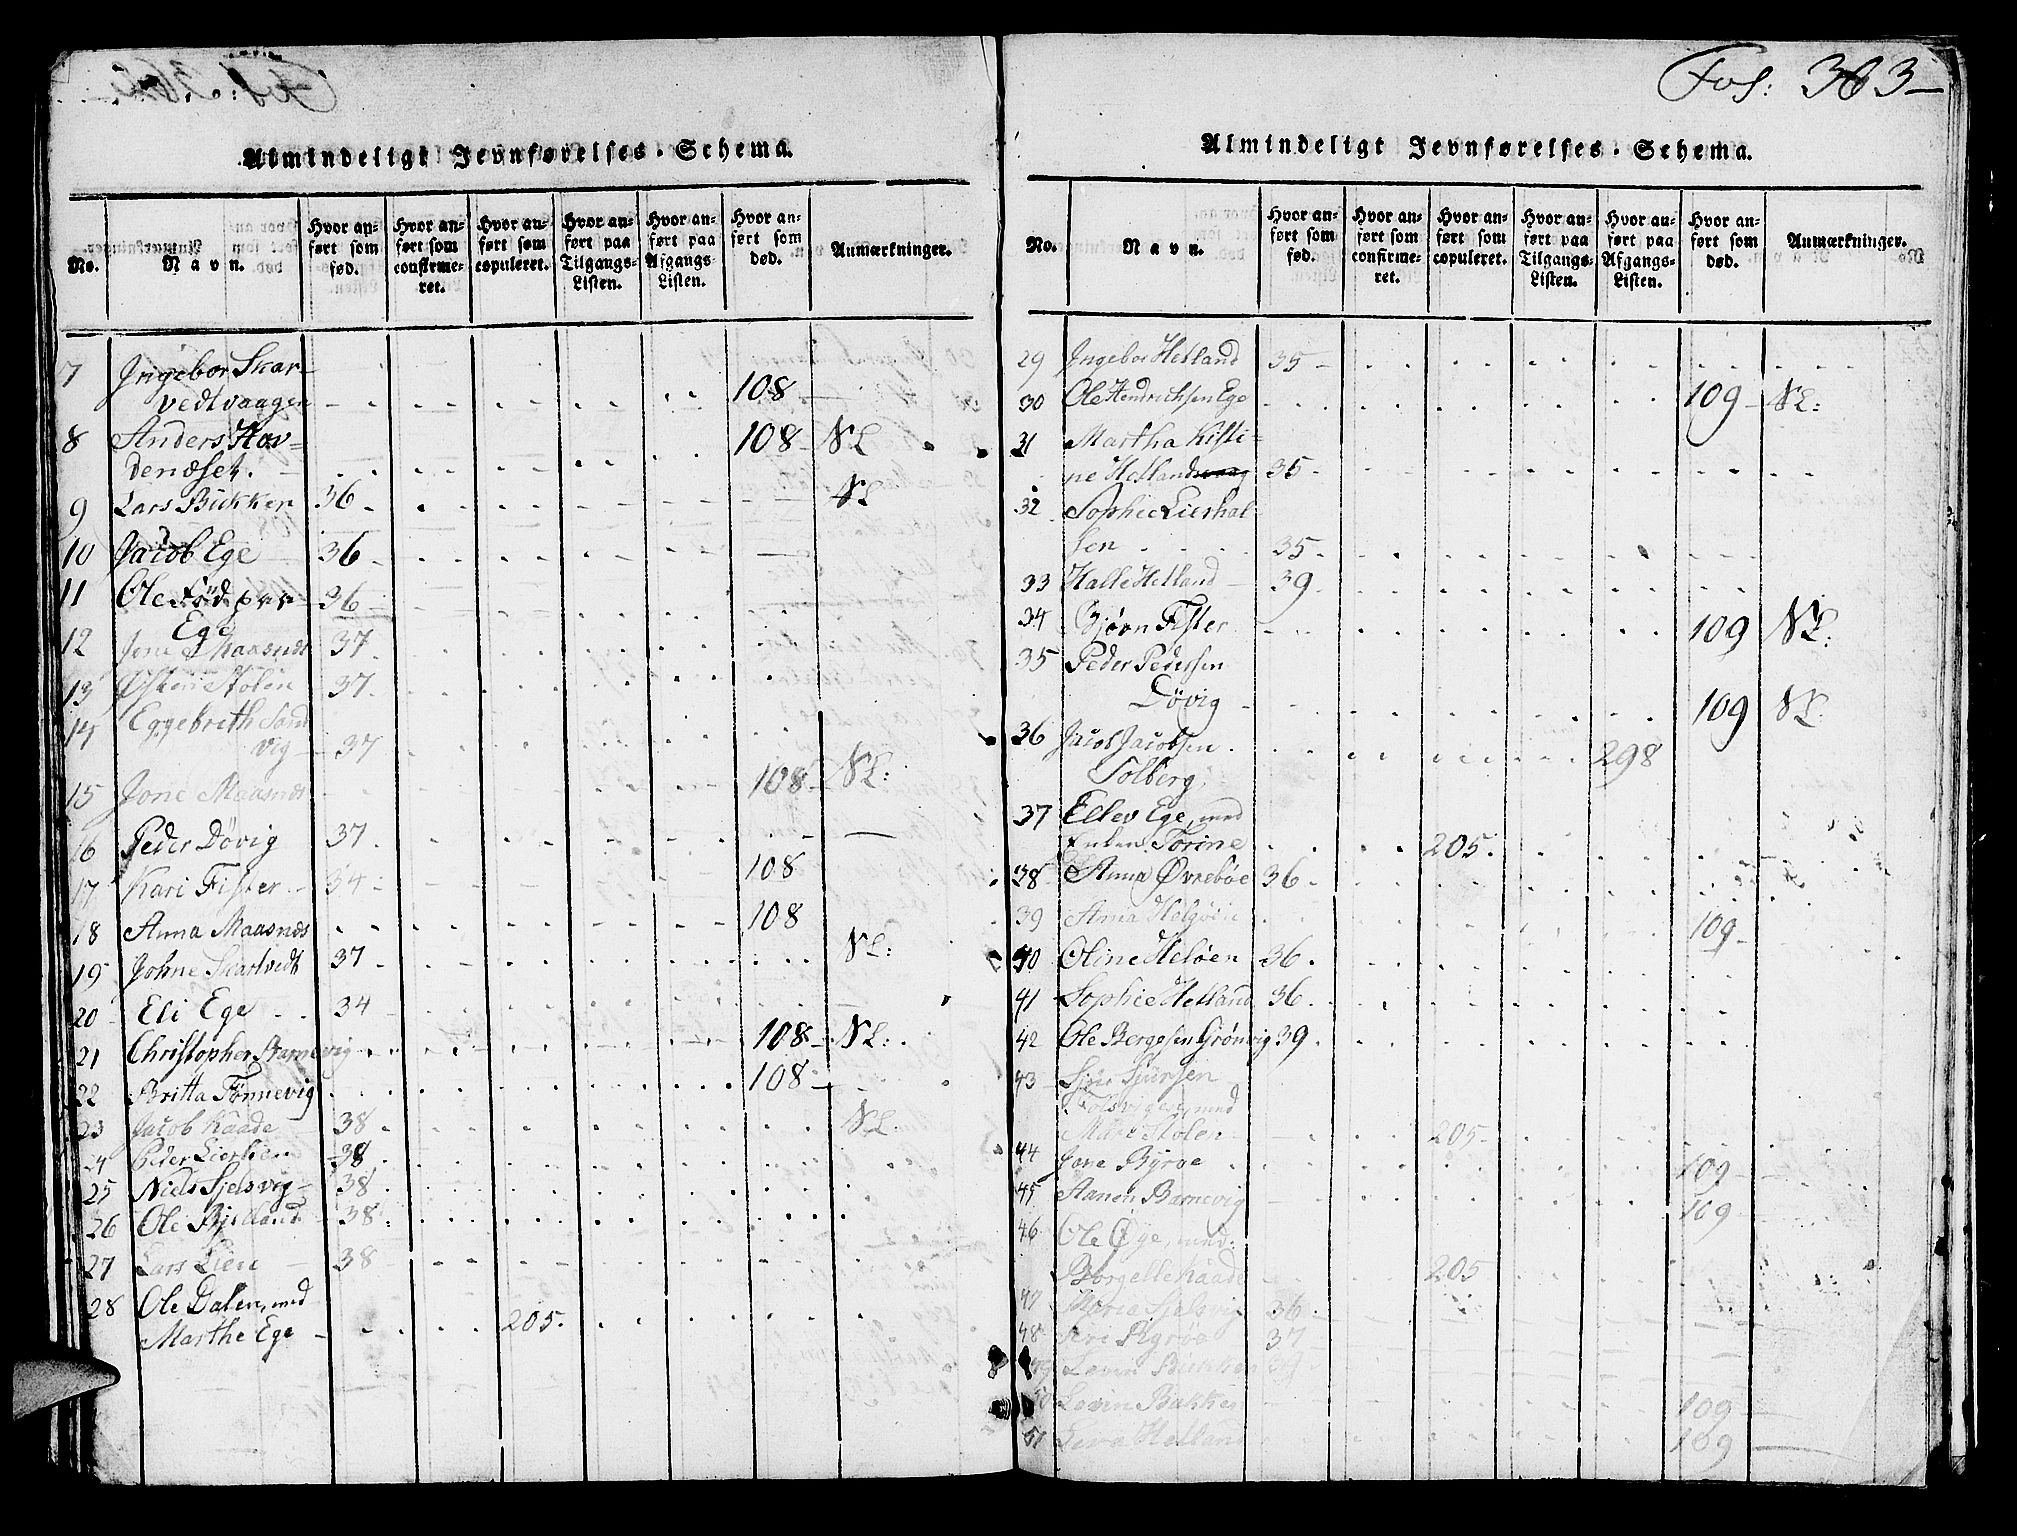 Almindeligt Jevnførelses-Schema.
No.
Navn.
Hvor anført som fød.
Hvor anført som confirmeret.
Hvor anført som copuleret.
Hvor anført paa Tilgangs-Listen.
Hvor anført paa Afgangs-Listen.
Hvor anført som død.
Anmærkninger.
7 Ingebor Skar-
vedtvaagen 108
8 Anders Hov-
denæset. 108 NL
9 Lars Bukken 36 NL
10 Jacob Ege 36
11 Ole Födper- 36
Ege
12 Jone Maasnæs 37
13 Østen Stolen 37
14 Eggebreth Sand
vig 37
15 Jone Maasnæs 108 NL:
16 Peder Dövig 37
17 Kari Fister 34 108
18 Anna Maasnæs 108
19 Johne Skartvedt 37 NL:
20 Eli Ege 34
21 Christopher Barnevig 108 NL:
22 Britta Tönnevig 108
23 Jacob Kaade 38 NL:
24 Peder Lierlien 38
25 Niels Sjelsvig 38
26 Ole Bjelland 38
27 Lars Lien 38
28 Ole Dalen, med
Marthe Ege 205
Fol: 363
Almindeligt Jevnførelses-Schema.
No.
Navn.
Hvor anført som fød.
Hvor anført som confirmeret.
Hvor anført som copuleret.
Hvor anført paa Tilgangs-Listen.
Hvor anført paa Afgangs-Listen.
Hvor anført som død.
Anmærkninger.
29 Ingebor Helland 35
30 Ole Hendrichsen Ege 109 NL:
31 Martha Kisti-
ne Helland 35
32 Sophie Lierhal-
sen 35
33 Halle Helland 39
34 Bjørn Fister 109 NL:
35 Peder Pedersen
Dövig 109 NL:
36 Jacob Jacobsen 298
Solberg
37 Ellev Ege, med
Enken Torine 205
38 Anna Øvrebøe 36
39 Anna Helgøen 109
40 Oline Heløen 36
41 Sophie Helland 36
42 Ole Bergesen Grønvig 39
43 Sjur Sjursen
Folsvigen, med
Mari Stolen 205
44 Jone Byrøe 109
45 Aanen Barnevig 109
46 Ole Øye, med
Borgelle Kaade 205
47 Maria Sjelsvig 36
48 Siri Byröe 37
49 Levin Bukken
50 Levin Bakken 109
51 Helland 109